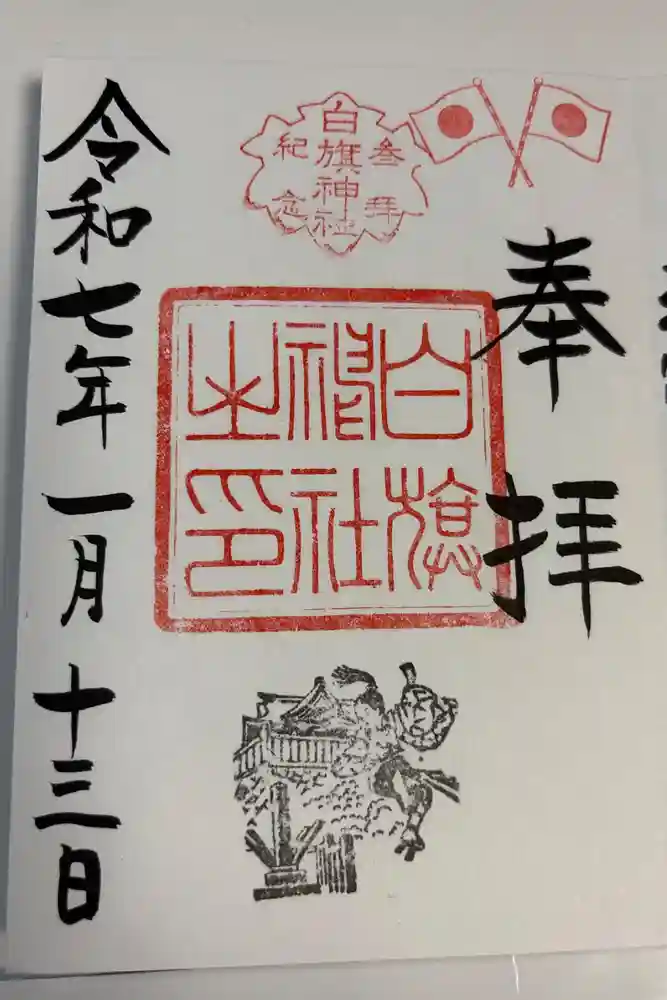 奉拝
白旗神社
参拝
紀念
白旗
神社
之印
令和七年一月十三日